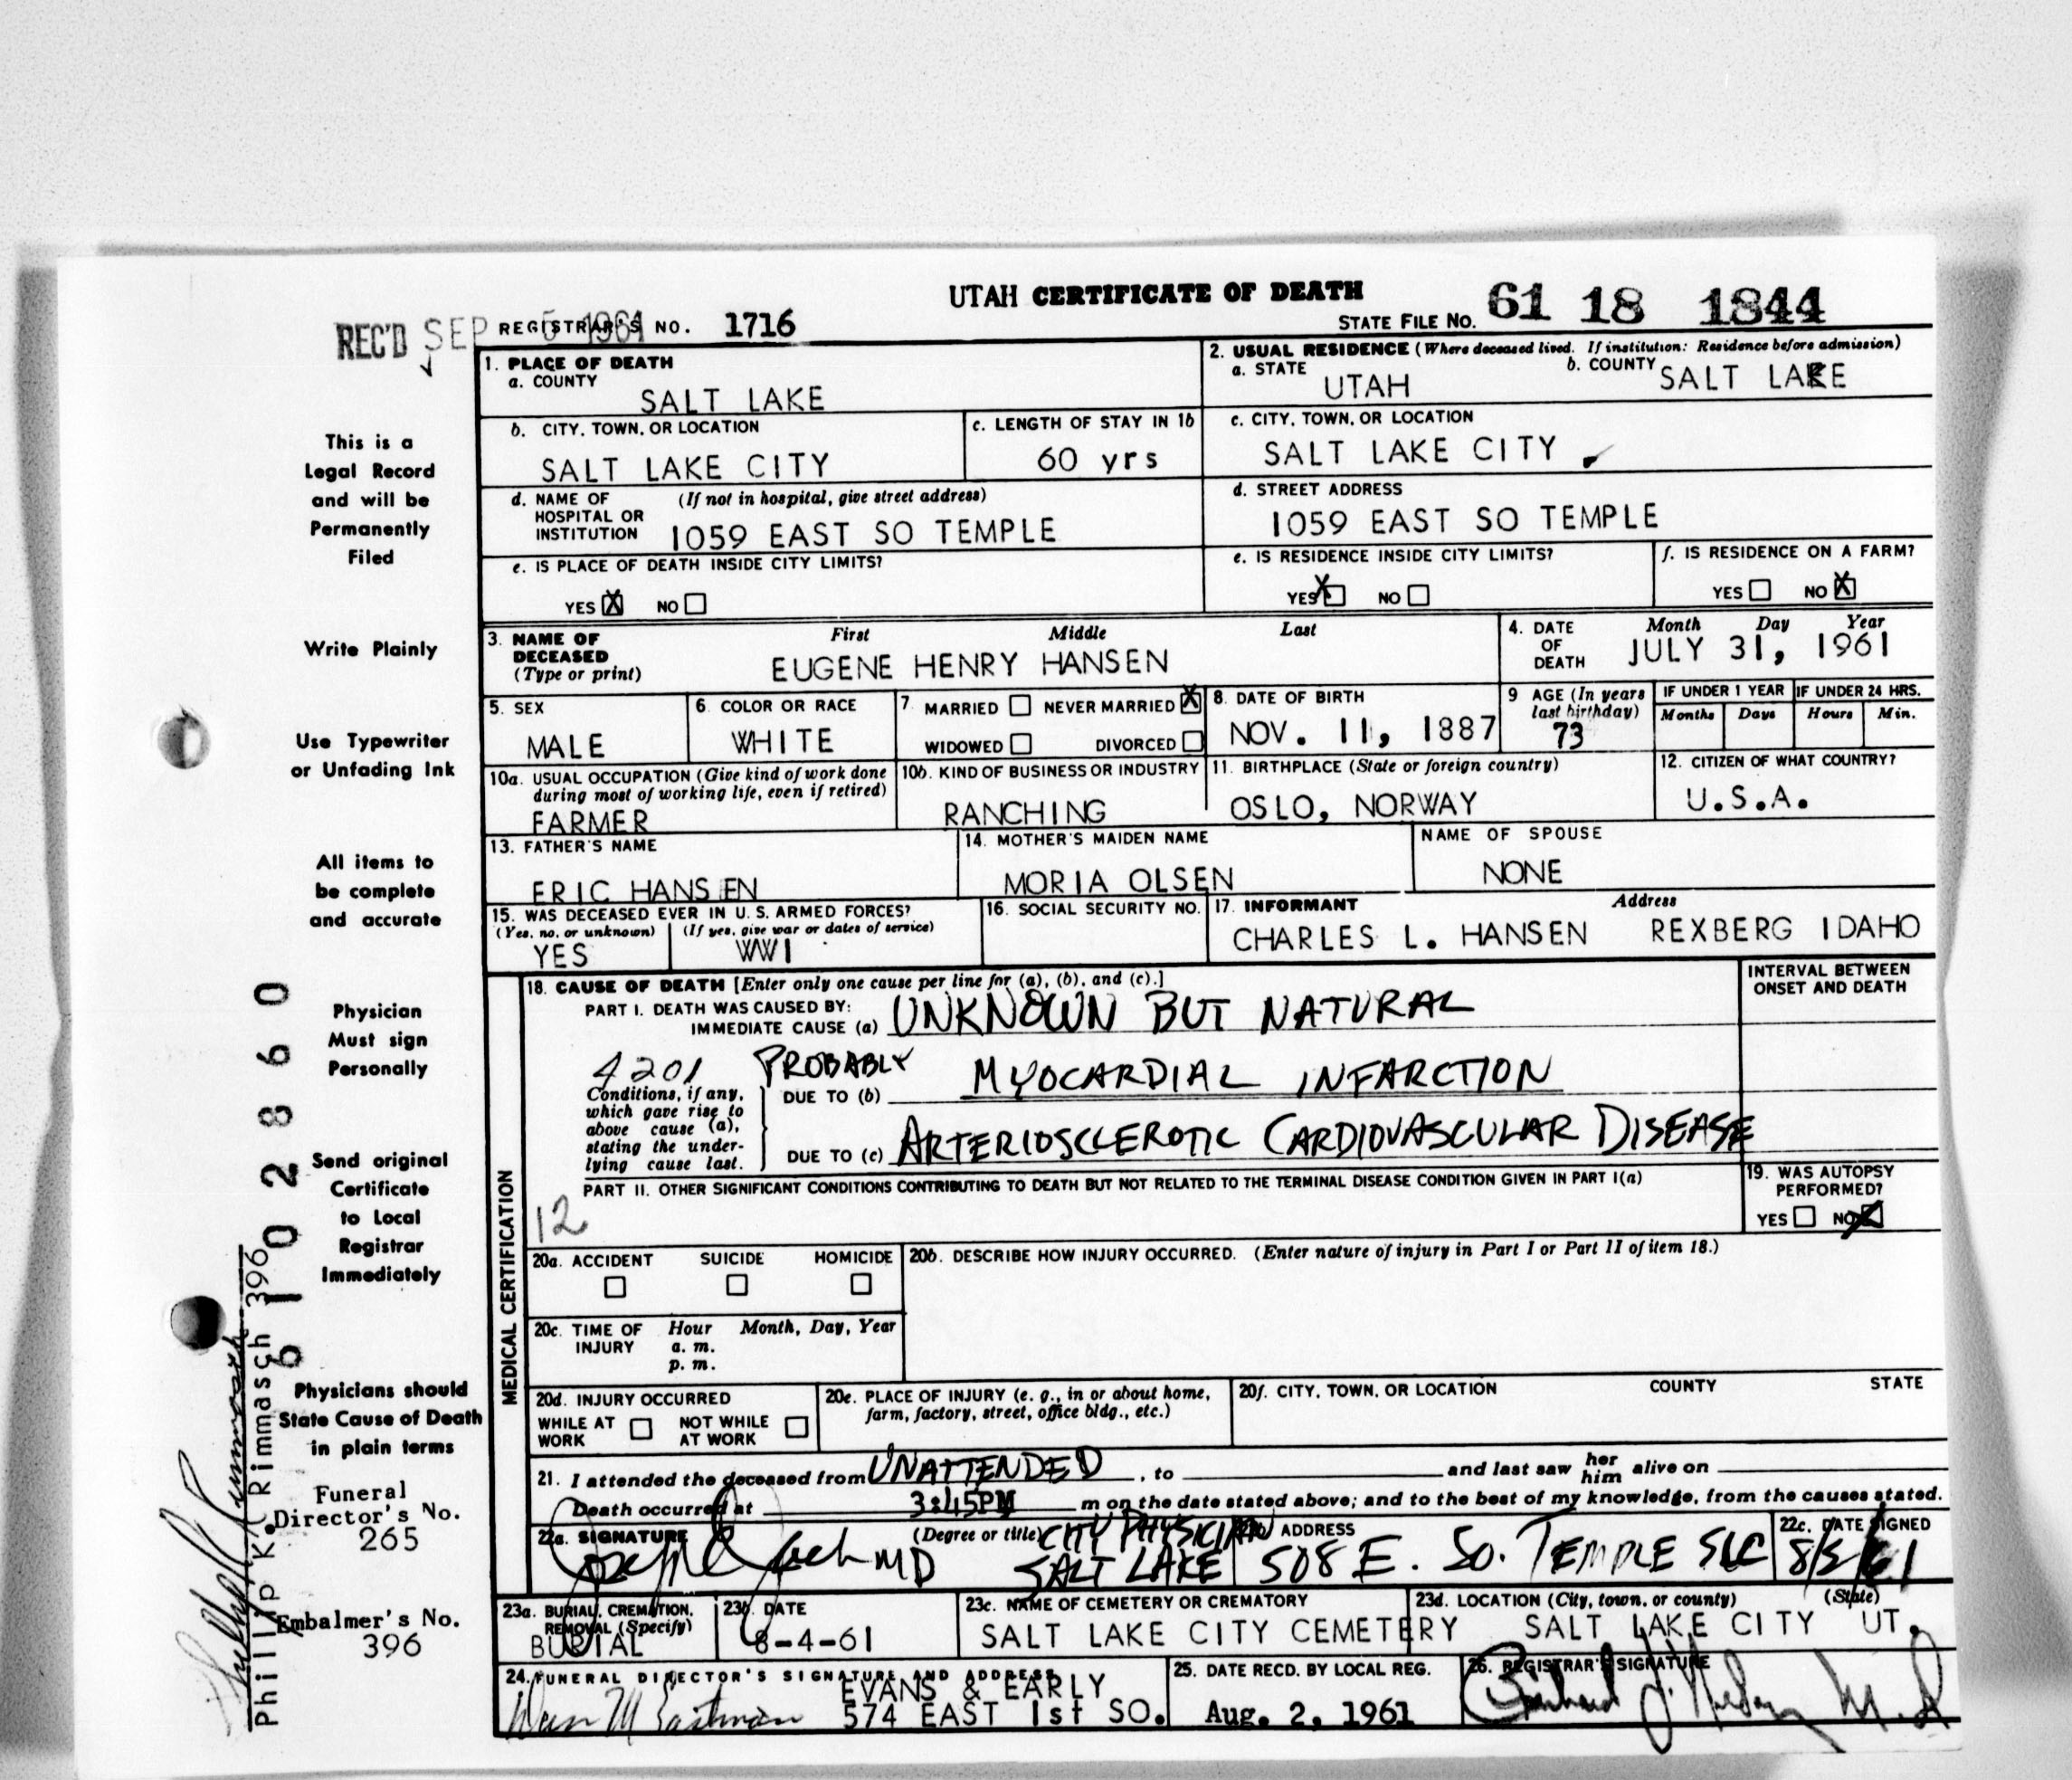 UTAH CERTIFICATE OF DEATH
REC'D SEP 5 1961
REGISTRAR'S NO. 1716
STATE FILE NO. 61 18 1844
1. PLACE OF DEATH
a. COUNTY
SALT LAKE
2. USUAL RESIDENCE (Where deceased lived. If institution: Residence before admission)
a. STATE UTAH b. COUNTY SALT LAKE
b. CITY, TOWN, OR LOCATION
SALT LAKE CITY
c. LENGTH OF STAY IN 1b
60 yrs
c. CITY, TOWN, OR LOCATION
SALT LAKE CITY
d. NAME OF HOSPITAL OR INSTITUTION (If not in hospital, give street address)
1059 EAST SO TEMPLE
d. STREET ADDRESS
1059 EAST SO TEMPLE
e. IS PLACE OF DEATH INSIDE CITY LIMITS?
YES X NO
e. IS RESIDENCE INSIDE CITY LIMITS?
YES X NO
f. IS RESIDENCE ON A FARM?
YES NO X
3. NAME OF DECEASED (Type or print)
First Middle Last
EUGENE HENRY HANSEN
4. DATE OF DEATH
Month Day Year
JULY 31, 1961
5. SEX
MALE
6. COLOR OR RACE
WHITE
7. MARRIED NEVER MARRIED X
WIDOWED DIVORCED
8. DATE OF BIRTH
NOV. 11, 1887
9 AGE (In years last birthday)
73
IF UNDER 1 YEAR
Months Days
IF UNDER 24 HRS.
Hours Min.
10a. USUAL OCCUPATION (Give kind of work done during most of working life, even if retired)
FARMER
10b. KIND OF BUSINESS OR INDUSTRY
RANCHING
11. BIRTHPLACE (State or foreign country)
OSLO, NORWAY
12. CITIZEN OF WHAT COUNTRY?
U.S.A.
13. FATHER'S NAME
ERIC HANSEN
14. MOTHER'S MAIDEN NAME
MORIA OLSEN
NAME OF SPOUSE
NONE
15. WAS DECEASED EVER IN U. S. ARMED FORCES?
(Yes, no, or unknown) (If yes, give war or dates of service)
YES WW1
16. SOCIAL SECURITY NO.
17. INFORMANT Address
CHARLES L. HANSEN REXBERG IDAHO
MEDICAL CERTIFICATION
18. CAUSE OF DEATH [Enter only one cause per line for (a), (b), and (c).]
INTERVAL BETWEEN ONSET AND DEATH
PART I. DEATH WAS CAUSED BY:
IMMEDIATE CAUSE (a) UNKNOWN BUT NATURAL
4201 PROBABLY
Conditions, if any, which gave rise to above cause (a), stating the underlying cause last.
DUE TO (b) MYOCARDIAL INFARCTION
DUE TO (c) ARTERIOSCLEROTIC CARDIOVASCULAR DISEASE
PART II. OTHER SIGNIFICANT CONDITIONS CONTRIBUTING TO DEATH BUT NOT RELATED TO THE TERMINAL DISEASE CONDITION GIVEN IN PART I(a)
12
19. WAS AUTOPSY PERFORMED?
YES NO X
20a. ACCIDENT SUICIDE HOMICIDE
20b. DESCRIBE HOW INJURY OCCURRED. (Enter nature of injury in Part I or Part II of item 18.)
20c. TIME OF INJURY Hour Month, Day, Year
a. m.
p. m.
20d. INJURY OCCURRED
WHILE AT WORK NOT WHILE AT WORK
20e. PLACE OF INJURY (e. g., in or about home, farm, factory, street, office bldg., etc.)
20f. CITY, TOWN, OR LOCATION COUNTY STATE
21. I attended the deceased from UNATTENDED, to and last saw her him alive on
Death occurred at 3:45PM m on the date stated above; and to the best of my knowledge, from the causes stated.
22a. SIGNATURE (Degree or title)
MD CITY PHYSICIAN SALT LAKE
ADDRESS
508 E. SO. TEMPLE SLC
22c. DATE SIGNED
8/3/61
23a. BURIAL, CREMATION, REMOVAL (Specify)
BURIAL
23b. DATE
8-4-61
23c. NAME OF CEMETERY OR CREMATORY
SALT LAKE CITY CEMETERY
23d. LOCATION (City, town, or county) (State)
SALT LAKE CITY UT.
24. FUNERAL DIRECTOR'S SIGNATURE AND ADDRESS
EVANS & EARLY
574 EAST 1st SO.
25. DATE RECD. BY LOCAL REG.
Aug. 2, 1961
26. REGISTRAR'S SIGNATURE
This is a
Legal Record
and will be
Permanently
Filed
Write Plainly
Use Typewriter
or Unfading Ink
All items to
be complete
and accurate
Physician
Must sign
Personally
Send original
Certificate
to Local
Registrar
Immediately
Physicians should
State Cause of Death
in plain terms
Funeral
Director's No.
265
Embalmer's No.
396
Phillip K. Rimmasch 396
61 02860